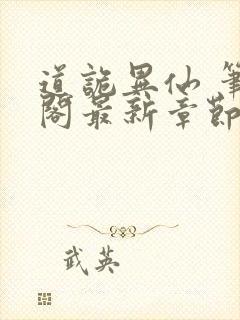 道詭異仙 筆
閣最新章節
武英